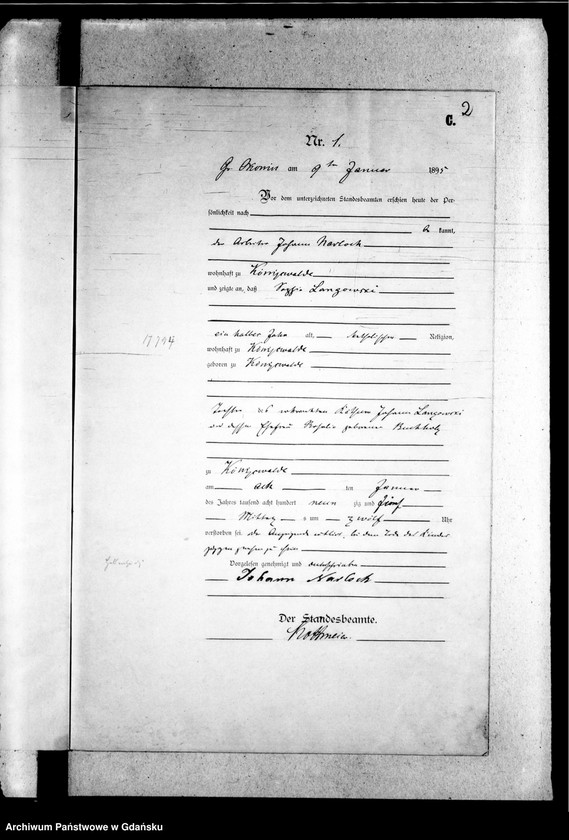 2
C.
Nr. 1.
Gr. Okonin am 9ten Januar 1895
Vor dem unterzeichneten Standesbeamten erschien heute der Per-
sönlichkeit nach
kannt,
der Arbeiter Johann Narloch
wohnhaft zu Königswalde
und zeigte an, daß Sophie Langowski
ein halbes Jahr alt, katholischer Religion,
wohnhaft zu Königswalde
geboren zu Königswalde
Tochter des Johann Langowski
und dessen Ehefrau Rosalie geborene Buchholz
zu Königswalde
am acht ten Januar
des Jahres tausend acht hundert neun zig und fünf
Mittags um zwölf Uhr
verstorben sei, der Anzeigende erklärt, bei dem Tode des Kindes
zugegen gewesen zu sein
Vorgelesen, genehmigt und unterschrieben
Johann Narloch
Der Standesbeamte.
17794
Archiwum Państwowe w Gdańsku